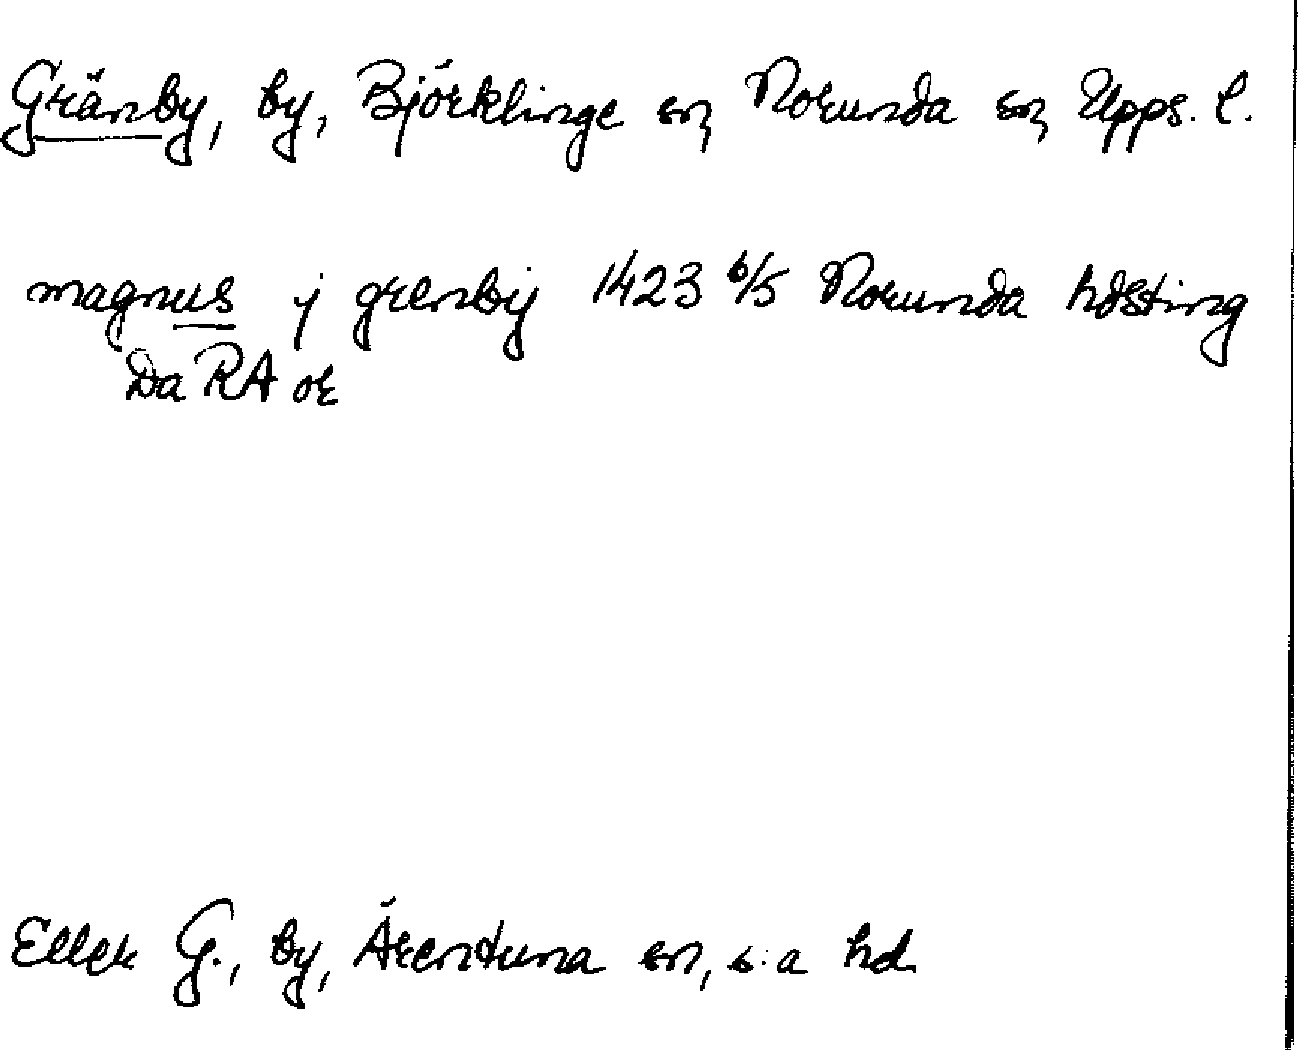 Gränby, by, Björklinge sn, Norunda sn, Upps. l.
magnus j grenby 1423 6/5 Norunda hdsting
Da RA or
Eller G., by, Ärentuna sn, s:a hd.